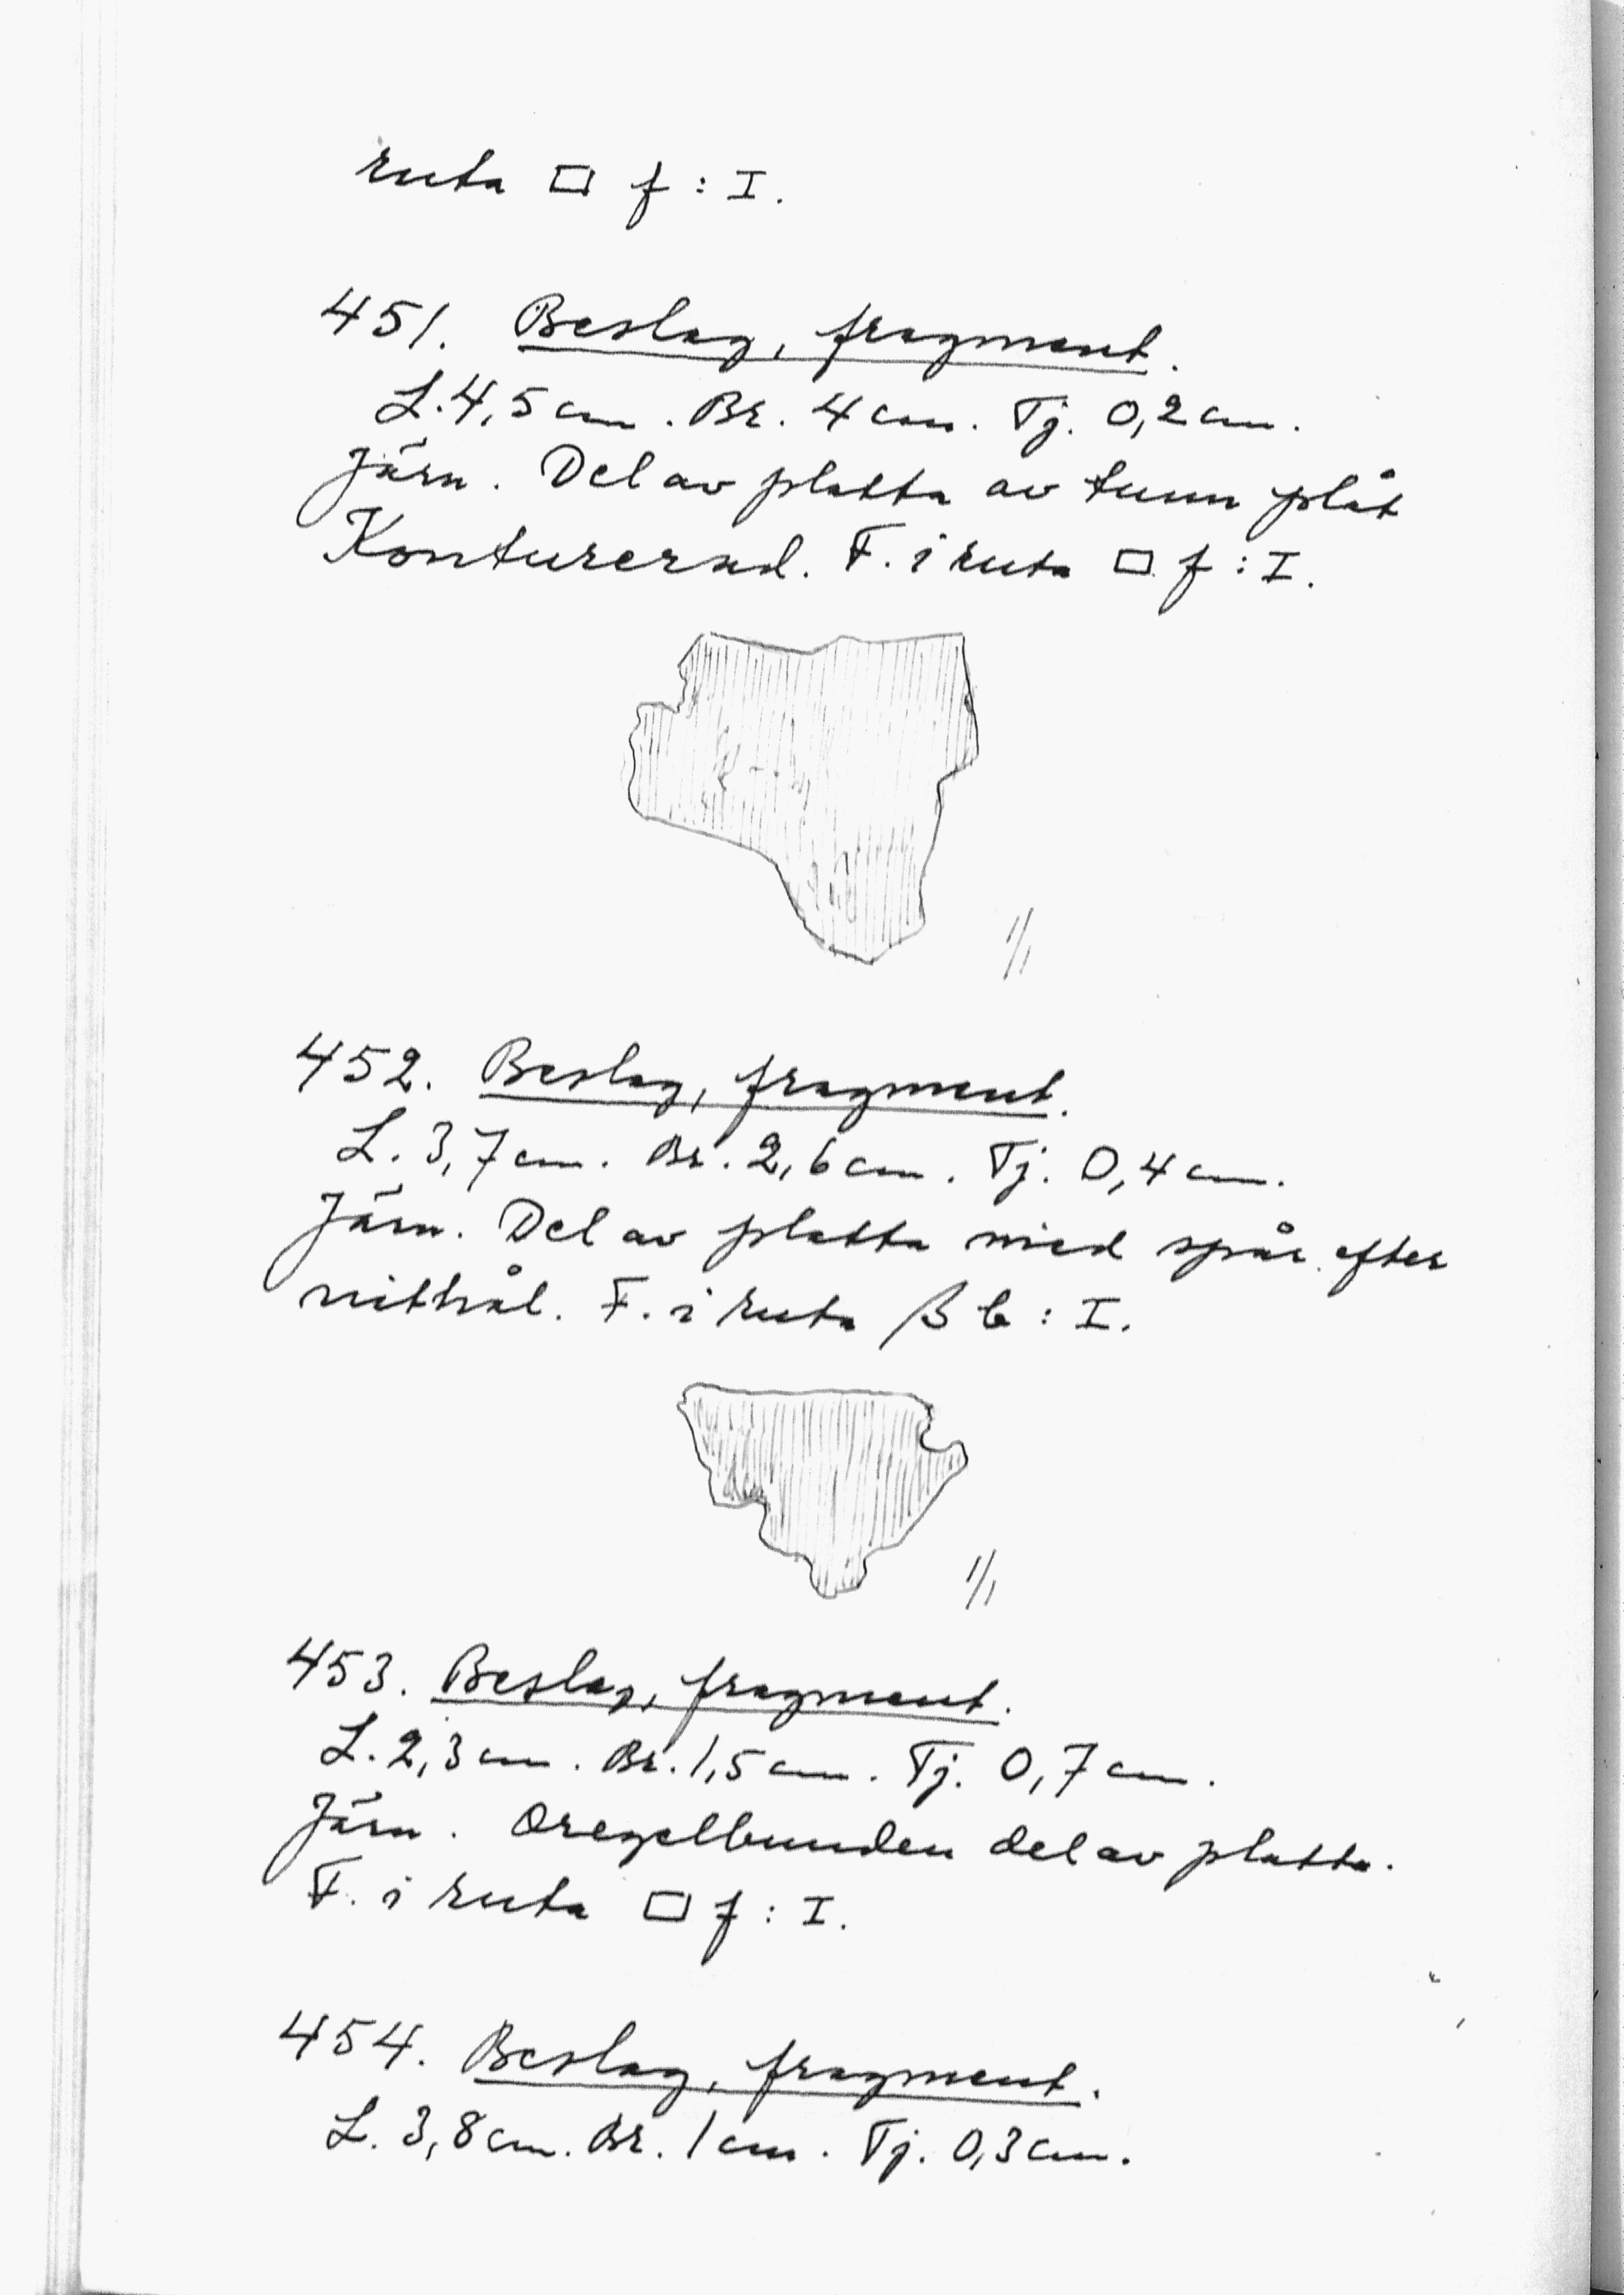 ruta □ f : I.
451. Beslag, fragment.
L. 4,5 cm. Br. 4 cm. Tj. 0,2 cm.
Järn. Del av platta av tunn plåt
Konturerad. F. i ruta □ f : I.
1/1
452. Beslag, fragment.
L. 3,7 cm. Br. 2,6 cm. Tj. 0,4 cm.
Järn. Del av platta med spår efter
nithål. F. i ruta β b : I.
1/1
453. Beslag, fragment.
L. 2,3 cm. Br. 1,5 cm. Tj. 0,7 cm.
Järn. Oregelbunden del av platta.
F. i ruta □ f : I.
454. Beslag, fragment.
L. 3,8 cm. Br. 1 cm. Tj. 0,3 cm.